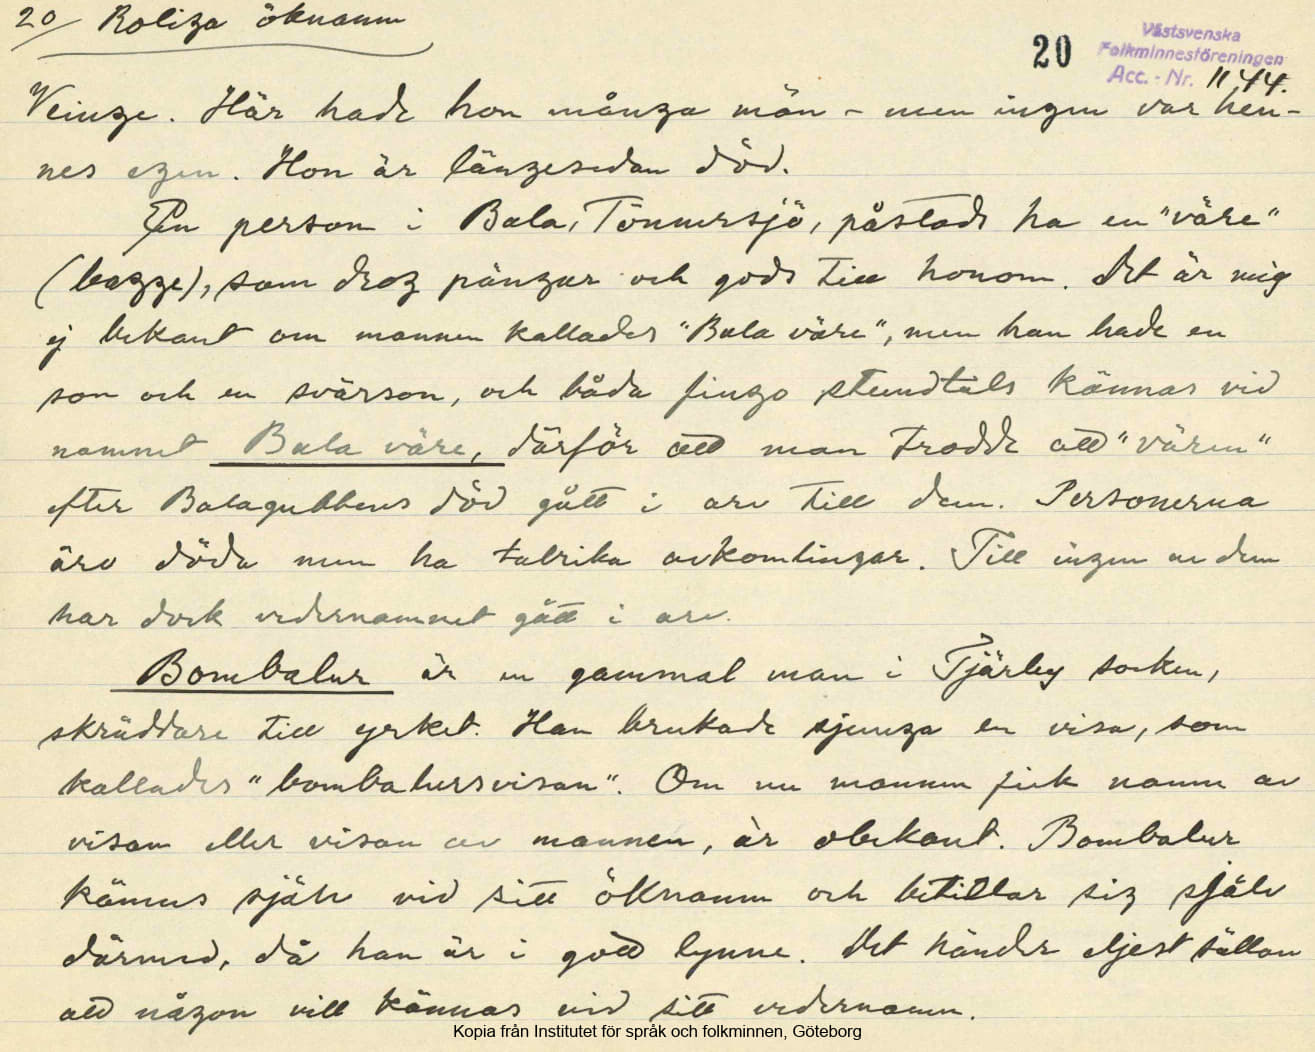 20/ Roliga öknamn
20
Västsvenska
Folkminnesföreningen
Acc. - Nr. 1144.
Veinge. Här hade hon många män – men ingen var hen-
nes egen. Hon är längesedan död.
En person i Bala, Tönnersjö, påstods ha en "väre"
(bagge), som drog pängar och gods till honom. Det är mig
ej bekant om mannen kallades "Bala väre", men han hade en
son och en svärson, och båda fingo stundtals kännas vid
namnet Bala väre, därför att man trodde att "vären"
efter Balagubbens död gått i arv till dem. Personerna
äro döda men ha talrika avkomlingar. Till ingen av dem
har dock vedernamnet gått i arv.
Bombalur är en gammal man i Tjärby socken,
skräddare till yrket. Han brukade sjunga en visa, som
kallades "bombalursvisan". Om nu mannen fick namn av
visan eller visan av mannen, är obekant. Bombalur
kännes själv vid sitt öknamn och betitlar sig själv
därmed, då han är i gott lynne. Det händer eljest sällan
att någon vill kännas vid sitt vedernamn.
Kopia från Institutet för språk och folkminnen, Göteborg